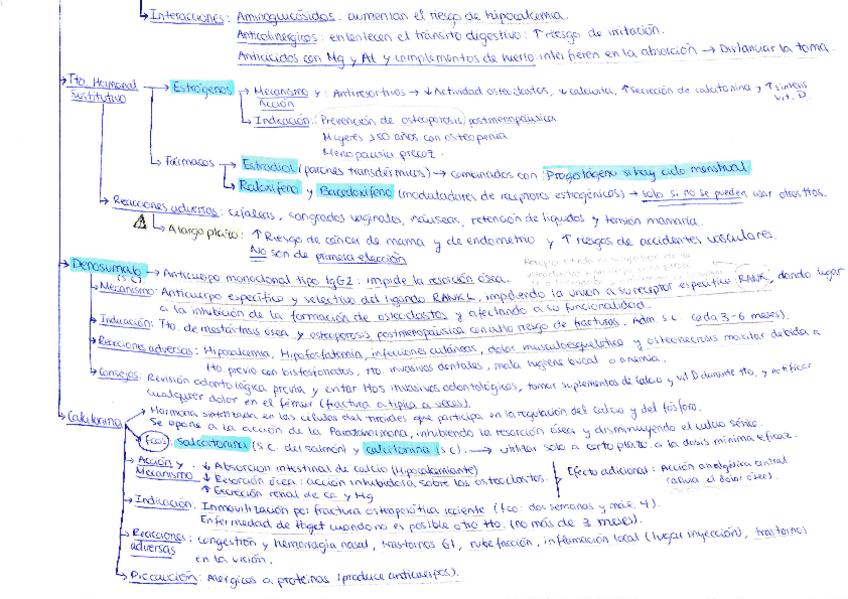 Interacciones: Aminoglucósidos: aumentan el riesgo de hipocalcemia.
Anticolinérgicos: enlentecen el tránsito digestivo: ↑ riesgo de irritación.
Antiácidos con Mg y Al y complementos de hierro interfieren en la absorción → Distanciar la toma.
Tto. Hormonal Sustitutivo
Estrógenos → Mecanismo y Acción: Antiresortivos → ↓ Actividad osteoclastos, ↓ calciuria, ↑ secreción de calcitonina y ↑ síntesis vit. D.
Indicación: Prevención de osteoporosis postmenopáusica
Mujeres >50 años con osteopenia
Menopausia precoz.
Fármacos → Estradiol (parches transdérmicos) → combinados con Progestágeno si hay ciclo menstrual
Raloxifeno y Bacedoxifeno (moduladores de receptores estrogénicos) → solo si no se pueden usar otros ttos.
Reacciones adversas: cefaleas, sangrados vaginales, náuseas, retención de líquidos y tensión mamaria.
A largo plazo: ↑ Riesgo de cáncer de mama y de endometrio y ↑ riesgos de accidentes vasculares.
No son de primera elección
Denosumab (s.c) → Anticuerpo monoclonal tipo IgG2: impide la resorción ósea.
Mecanismo: Anticuerpo específico y selectivo del ligando RANKL, impidiendo la unión a su receptor específico RANK, dando lugar
a la inhibición de la formación de osteoclastos y afectando a su funcionalidad.
Indicación: Tto. de metástasis ósea y osteoporosis postmenopáusica con alto riesgo de fracturas. Adm s.c. (cada 3-6 meses).
Reacciones adversas: Hipocalcemia, Hipofosfatemia, infecciones cutáneas, dolor musculoesquelético y osteonecrosis maxilar debida a
tto previo con bisfosfonatos, tto. invasivos dentales, mala higiene bucal o anemia.
Consejos: Revisión odontológica previa y evitar ttos invasivos odontológicos, tomar suplementos de calcio y vit D durante tto, y notificar
cualquier dolor en el fémur (fractura atípica a veces).
Calcitonina
Hormona sintetizada en las células del tiroides que participa en la regulación del calcio y del fósforo.
Se opone a la acción de la Paratohormona, inhibiendo la resorción ósea y disminuyendo el calcio sérico.
fcos: salcatonina (s.c. del salmón) y calcitonina (s.c). → utilizar solo a corto plazo a la dosis mínima eficaz.
Acción y Mecanismo
↓ Absorción intestinal de calcio (Hipocalcemiante)
↓ Resorción ósea: acción inhibidora sobre los osteoclastos.
↑ Excreción renal de Ca y Mg
Efecto adicional: Acción analgésica central
(alivia el dolor óseo).
Indicación: Inmovilización por fractura osteoporótica reciente (tto: dos semanas y máx. 4).
Enfermedad de Paget cuando no es posible otro tto. (no más de 3 meses).
Reacciones adversas: congestión y hemorragia nasal, trastornos GI, rubefacción, inflamación local (lugar inyección), trastornos
en la visión.
Precaución: Alérgicos a proteínas (produce anticuerpos).